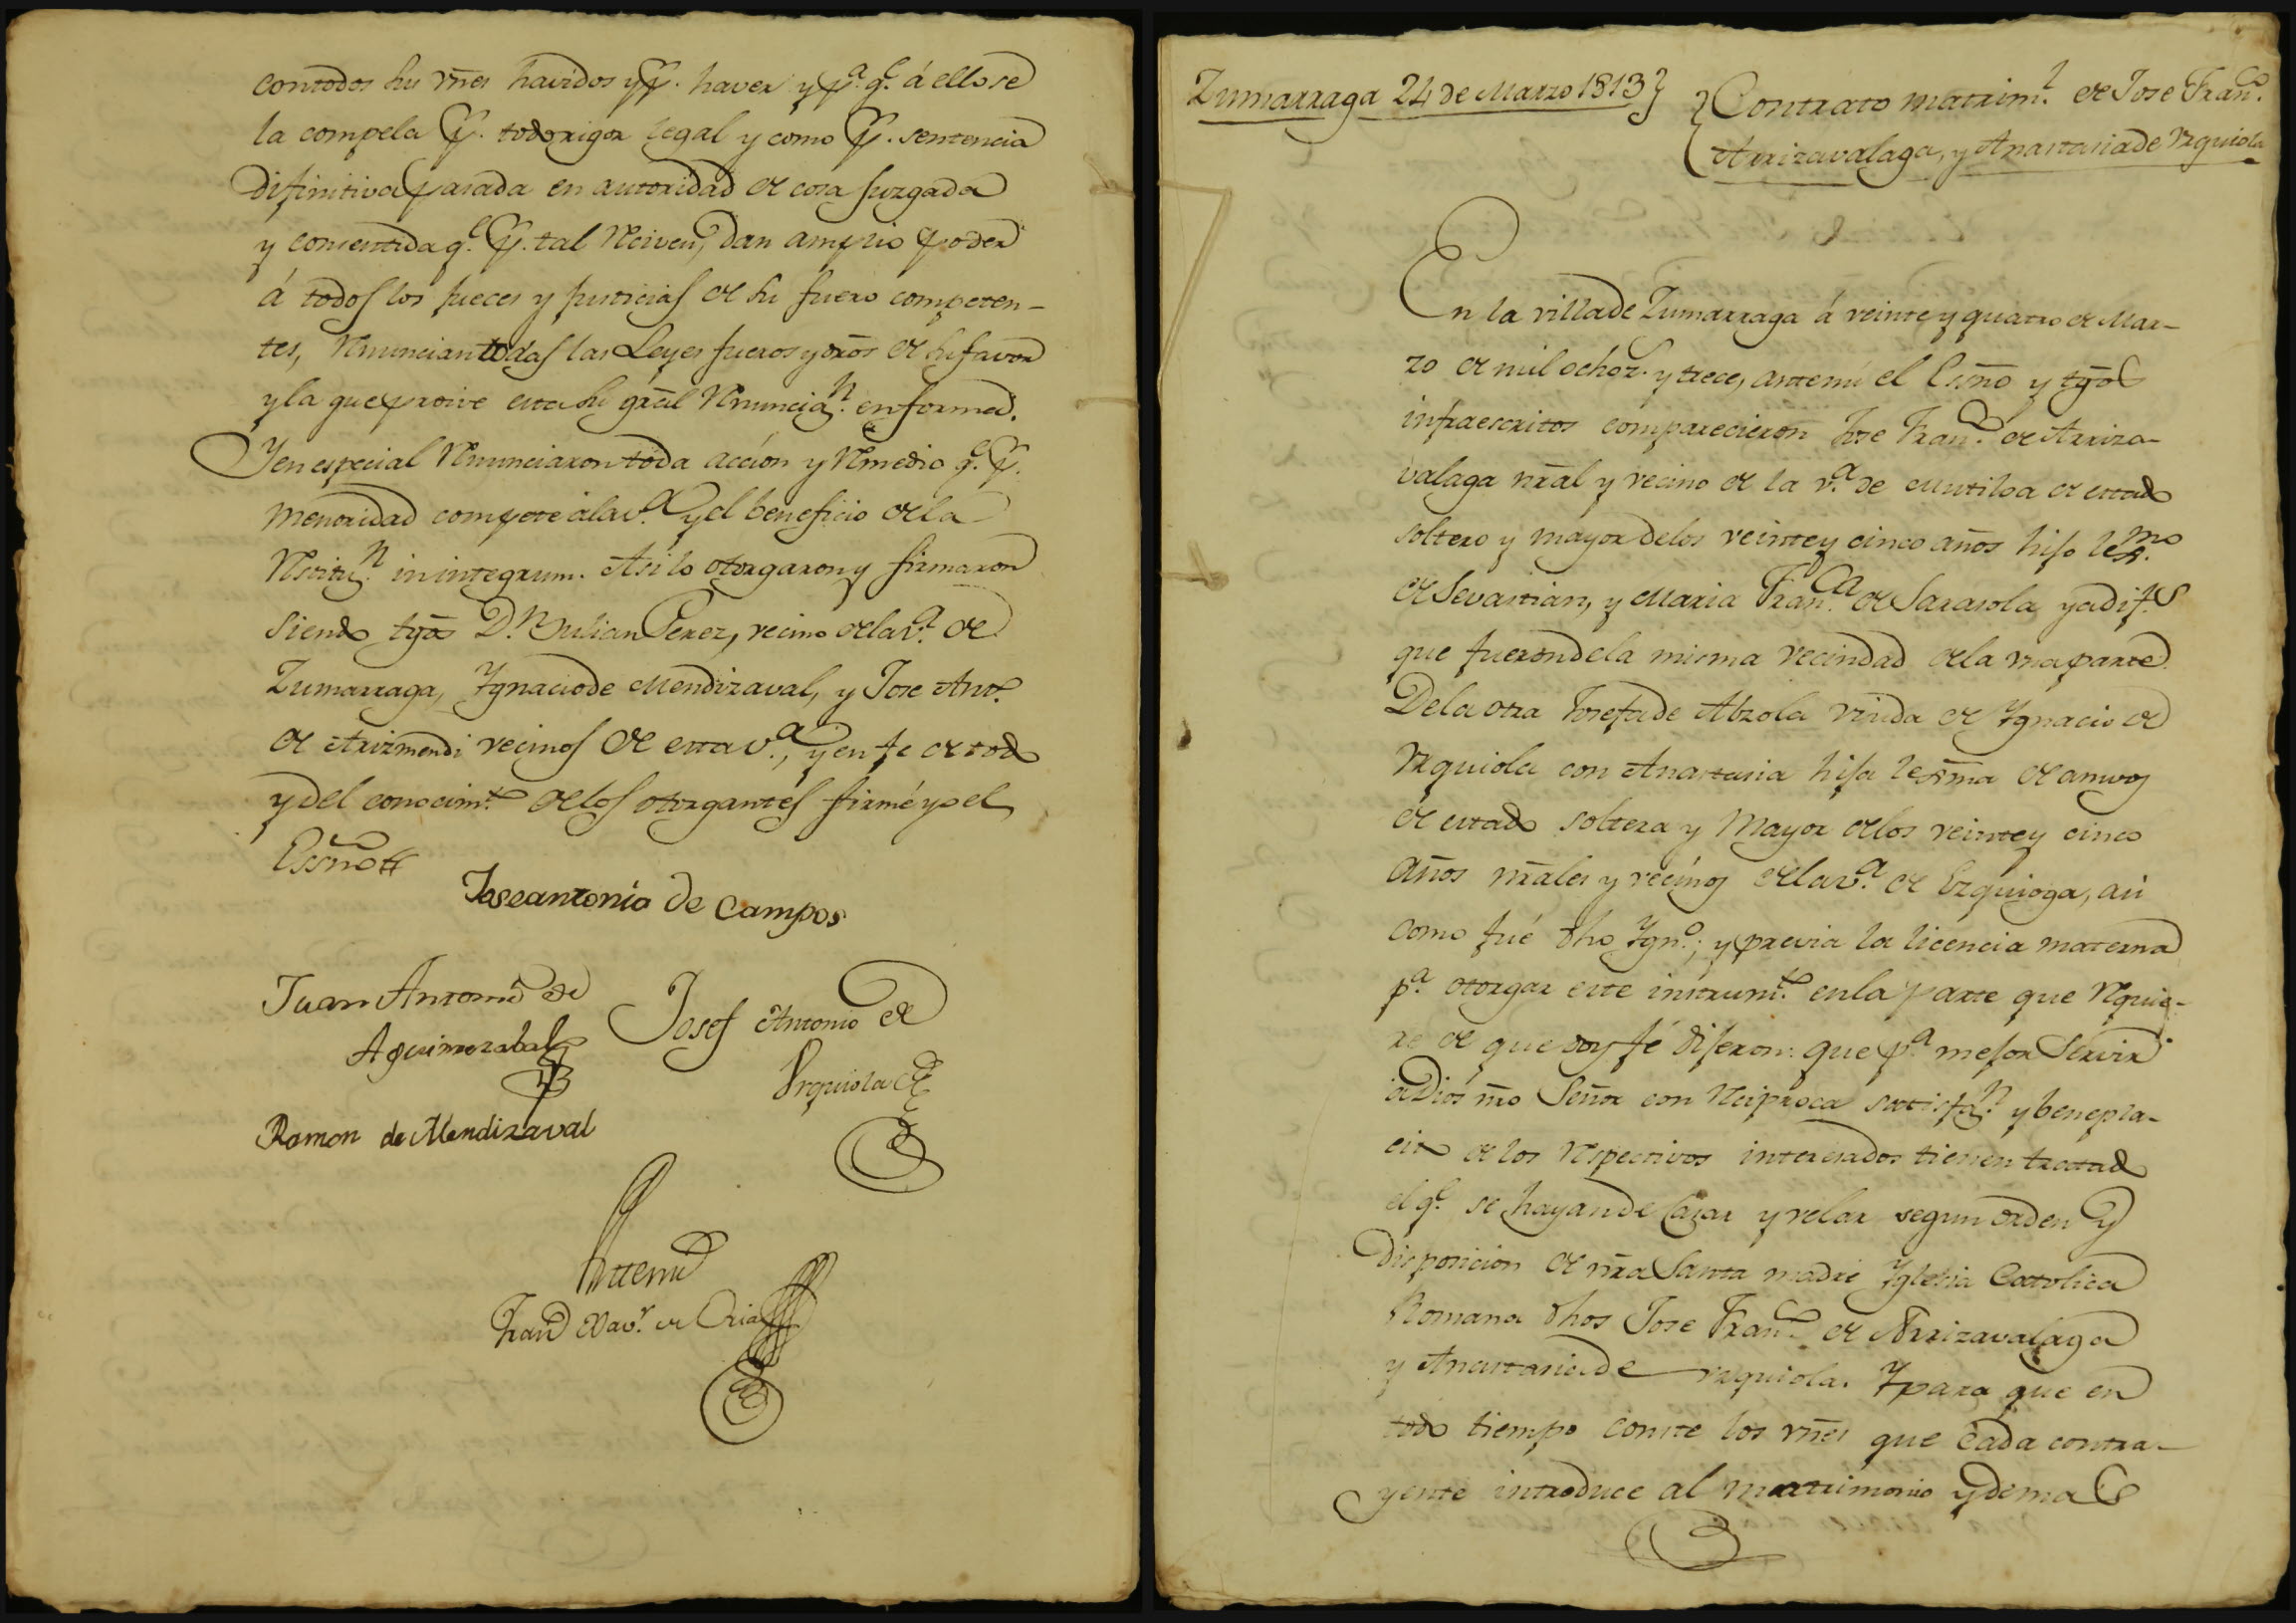 con todos sus vñes havidos y p.r haver y p.a q.e á ello se
la compela p.r todo rigor legal y como p.r sentencia
difinitiva pasada en autoridad de cosa juzgada
y consentida q.e p.r tal reciven, dan amplio poder
á todos los jueces y justicias de su fuero competen-
tes, renuncian todas las Leyes fueros y dr̃os de su favor
y la que proive esta su gr̃al renuncia.n en forma.
Y en especial renunciaron toda acción y remedio q.e p.r
menoridad compete á la v.a y el beneficio de la
restitu.n in integrum. Asi lo otorgaron y firmaron
siendo tgõs D.n Julian Perez, vecino de la v.a de
Zumarraga, Ygnacio de Mendizaval, y Jose Ant.o
de Arizmendi vecinos de esta v.a, y en fe de todo
y del conocim.to de los otorgantes firmé yo el
Essño
Jose antonio de campos
Juan Antonio de
Aguirrezabal
Josef Antonio de
Urquiola
Ramon de Mendizaval
Antemi
Fran.co Xav.r de Oria
Zumarraga 24 de Marzo 1813
Contrato matrim.l de Jose Fran.co
Arrizavalaga, y Anastasia de Urquiola
En la villa de Zumarraga á veinte y quatro de Mar-
zo de mil ochoz.s y trece, ante mi el Esño y tgõs
infraescritos comparecieron Jose Fran.co de Arriza-
valaga nr̃al y vecino de la v.a de Mutiloa de estado
soltero y mayor de los veinte y cinco años hijo lexmo
de Sevastian, y Maria Fran.ca de Sarasola ya dif.s
que fueron de la misma vecindad de la una parte.
De la otra Josefa de Alzola viuda de Ygnacio de
Urquiola con Anastasia hija lexma de amvos
de estado soltera y Mayor de los veinte y cinco
años nr̃ales y vecinos de la v.a de Ezquioga, asi
como fué dho Ygn.o; y previa la licencia materna
p.a otorgar este instrum.to en la parte que requie-
re de que doy fé dijeron: que p.a mejor servir
a Dios nr̃o Señor con reciproca satisfa.n y benepla-
cito de los respectivos interesados tienen tratado
el q.e se hayan de casar y velar segun orden y
disposicion de nr̃a Santa madre Yglesia Catolica
Romana dhos Jose Fran.co de Arrizavalaga
y Anastasia de Urquiola. Y para que en
todo tiempo conste los vñes que cada contra-
yente introduce al matrimonio y demas